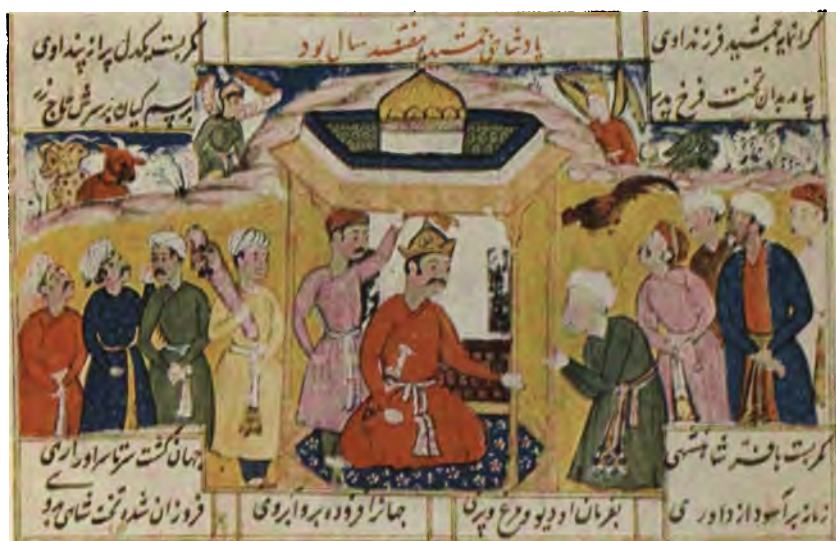 پادشاهی جمشید هفتصد سال بود
گرانمایه جمشید فرزند اوی
کمر بست یکدل پر از پند اوی
چآمد بدان تخت فرخ پدر
برسم کیان بر سرش تاج زر
کمر بست با فر شاهنشهی
جهان گشت سرتاسر او را رهی
زمانه بر آسود از داوری
بفرمان او دیو و مرغ و پری
جهانرا فزوده برو آبروی
فروزان شده تخت شاهی بدو